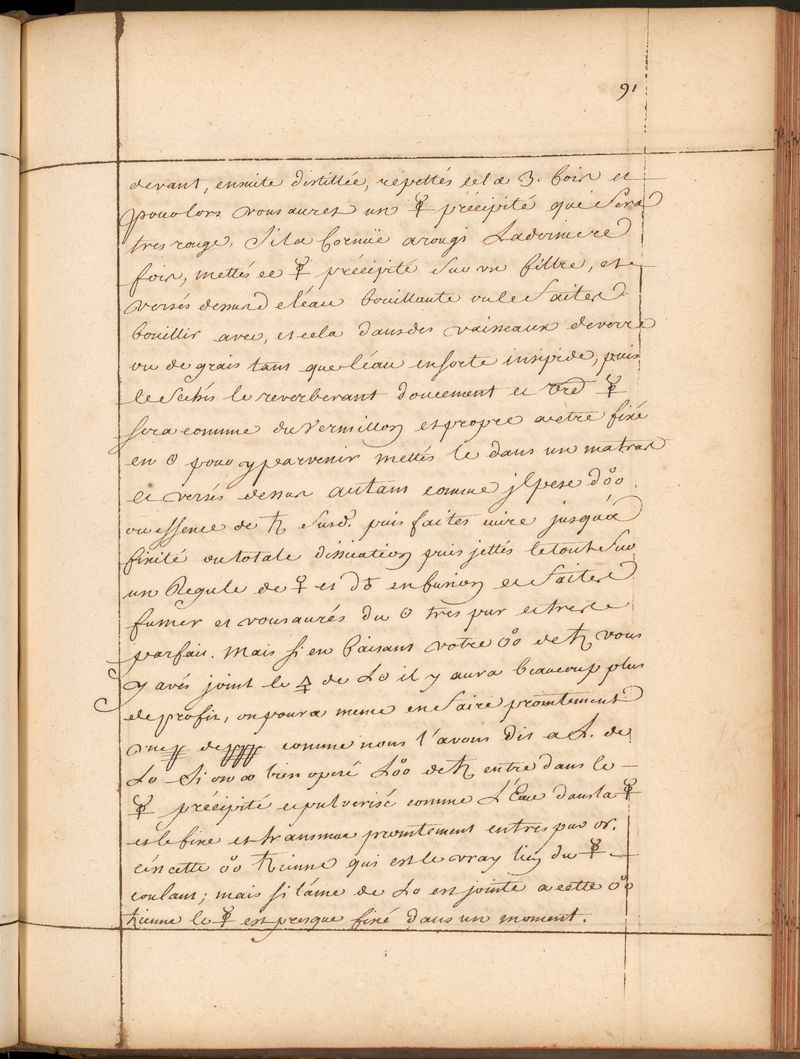 91
devant, ensuite distillée, repettés cela 3. fois et
pour lors vous aures un ☿ précipité qui sera
tres rouge, Si la Cornuë a rougi La derniere
fois, mettés ce ☿ précipité sur un filtre, et
versés dessus de l'eau bouillante ou le faites
bouillir avec, et cela dans des vaisseaux de verre
ou de grais tant que l'eau en sorte insipide, puis
le sechés le reverberant doucement et ☿
sera comme du Vermillon et propre a être fixé
en ☉ pour y parvenir mettés le dans un matras
et versés dessus autant comme jl pese
ou essence de ♄ susd. puis faites cuire jusqu'a
fixité ou totale dissication puis jettés le tout sur
un Regule de ♀ et en fusion et faites
fumer et vous aurés du ☉ tres pur et tres
parfait. Mais si en faisant votre de ♄ vous
y avés joint le 🜍 de Lo il y aura beaucoup plus
de profit, on poura meme en faire promtement
une comme nous l'avons dit a L. de
Lo Si on a bien operé de ♄ entre dans le
☿ précipité et pulverisé comme L'Eau dans la
et le fixe et transmue promtement en tres pur or.
c'est cette ♄ienne qui est le vray lien du ☿
coulant; mais si l'ame de Lo est jointe a cette
♄ienne le ☿ est presque fixé dans un moment.